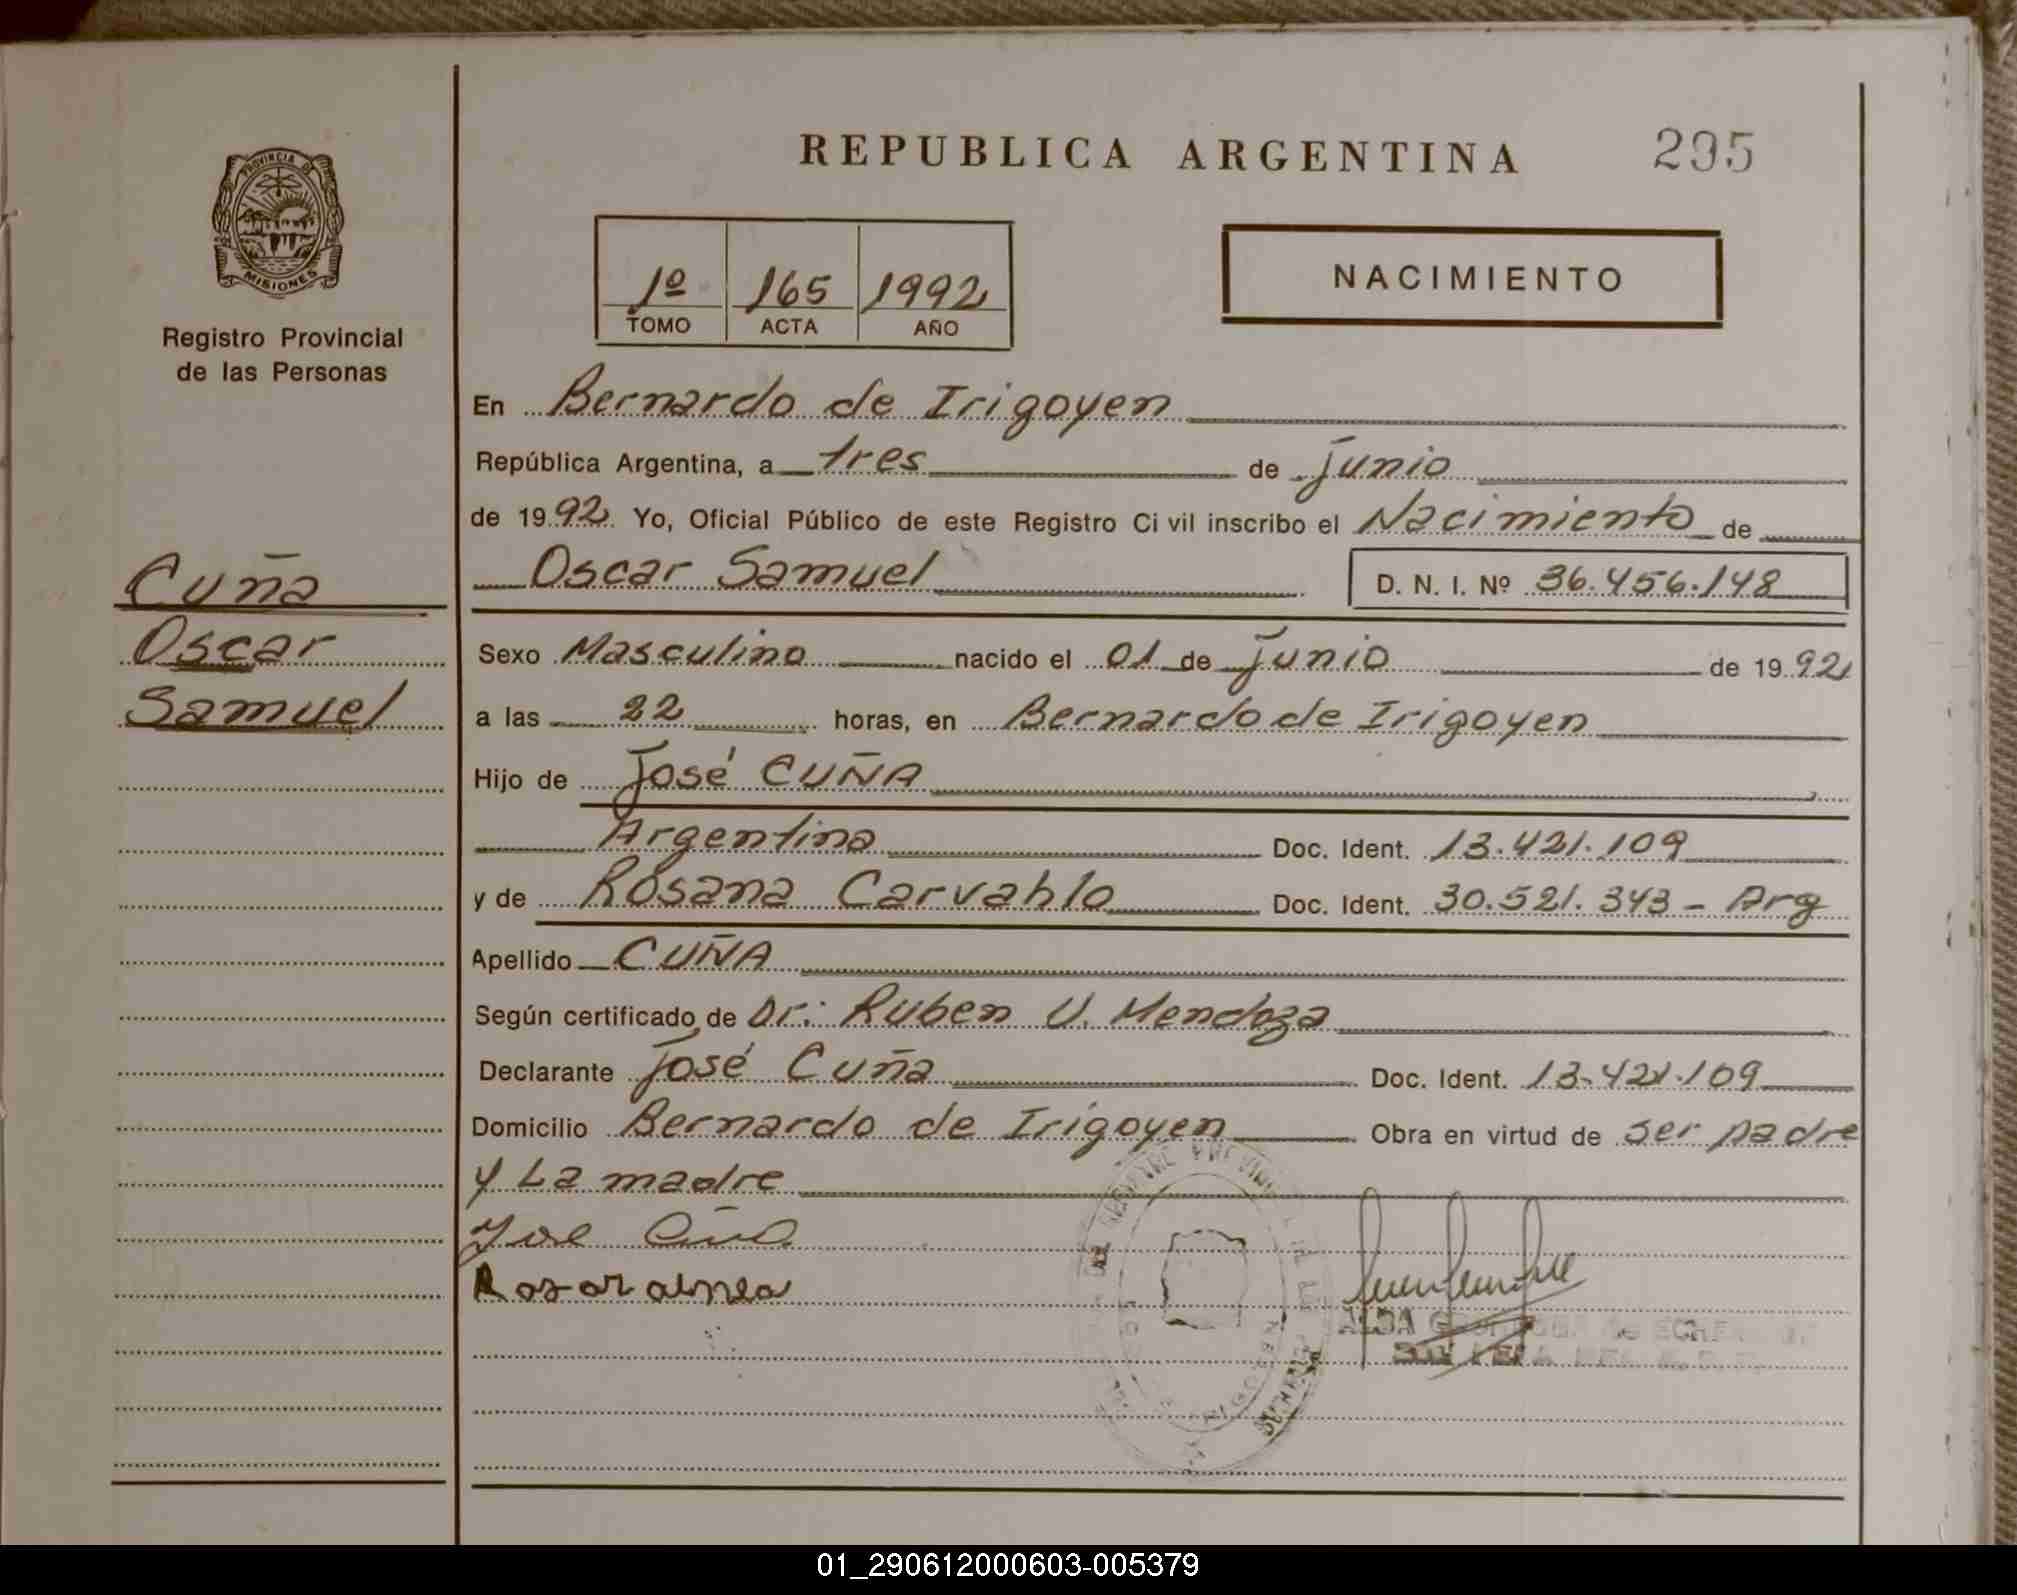 REPUBLICA ARGENTINA
295
PROVINCIA DE
MISIONES
Registro Provincial
de las Personas
1º 165 1992
TOMO ACTA AÑO
NACIMIENTO
En Bernardo de Irigoyen
República Argentina, a tres de junio
de 1992 Yo, Oficial Público de este Registro Ci vil inscribo el Nacimiento de
Oscar Samuel D. N. I. Nº 36.456.148
Cuña
Oscar
Samuel
Sexo Masculino nacido el 01 de junio de 1992
a las 22 horas, en Bernardo de Irigoyen
Hijo de José CUÑA
Argentina Doc. Ident. 13.421.109
y de Rosana Carvahlo Doc. Ident. 30.521.343 - Arg
Apellido CUÑA
Según certificado de Dr: Ruben U. Mendoza
Declarante José Cuña Doc. Ident. 13.421.109
Domicilio Bernardo de Irigoyen Obra en virtud de ser padre
y La madre
ALBA
01_290612000603-005379